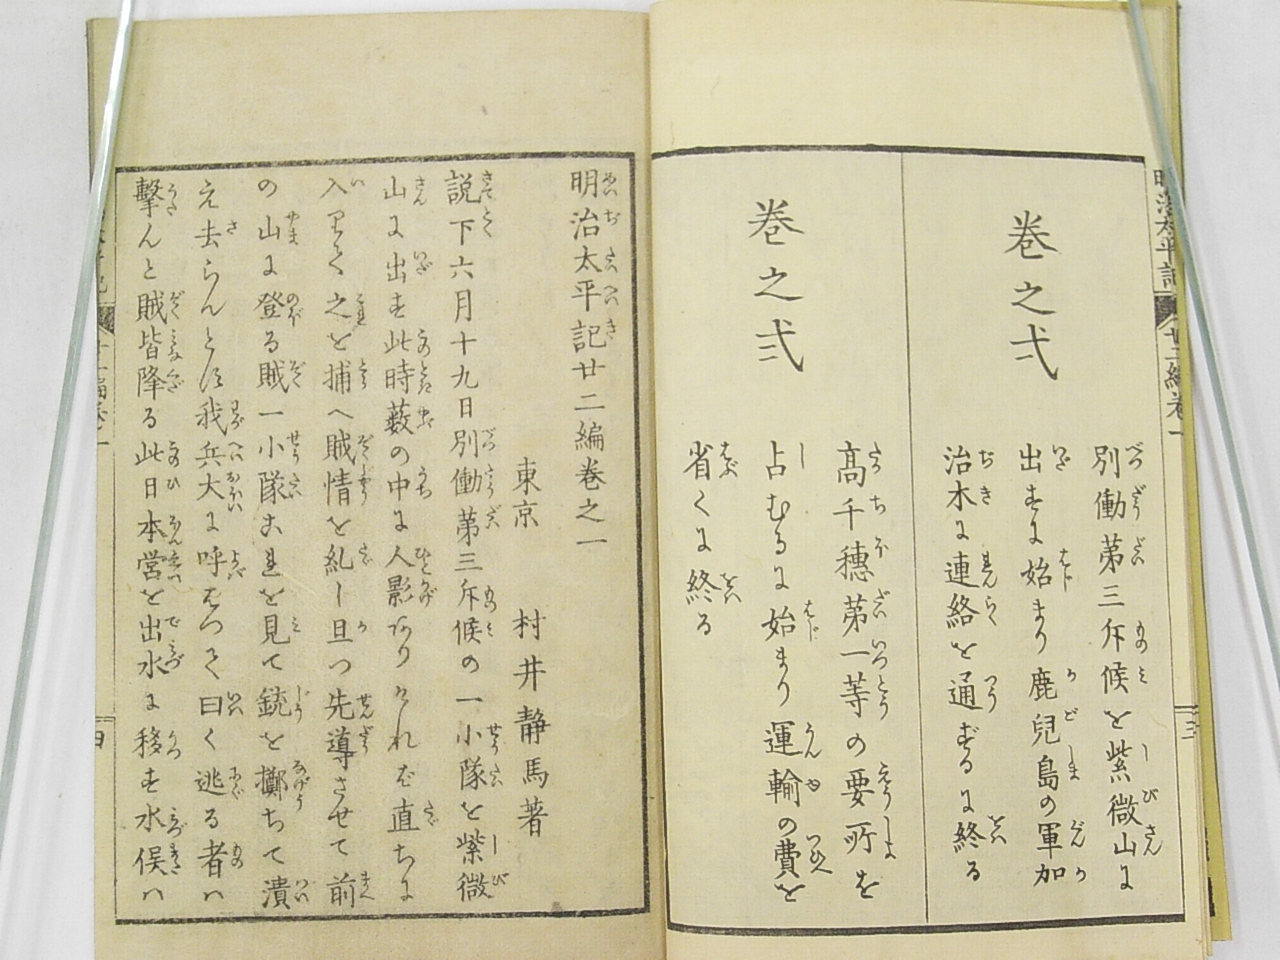 明治太平記
廿二編卷一
三
卷之弌
別働第三斥候を紫微山に
出すに始まり鹿兒島の軍加
治木に連絡を通ずるに終る
卷之弍
高千穗第一等の要所を
占むるに始まり運輸の費を
省くに終る
明治太平記廿二編卷之一
東京 村井靜馬著
説下六月十九日別働第三斥候の一小隊を紫微
山に出す此時藪の中に人影ありければ直ちに
入りて之を捕へ賊情を糺し且つ先導させて前
の山に登る賊一小隊これを見て銃を擲ちて潰
え去らんとす我兵大に呼はつて曰く逃る者ハ
擊んと賊皆降る此日本営を出水に移す水俣ハ
四